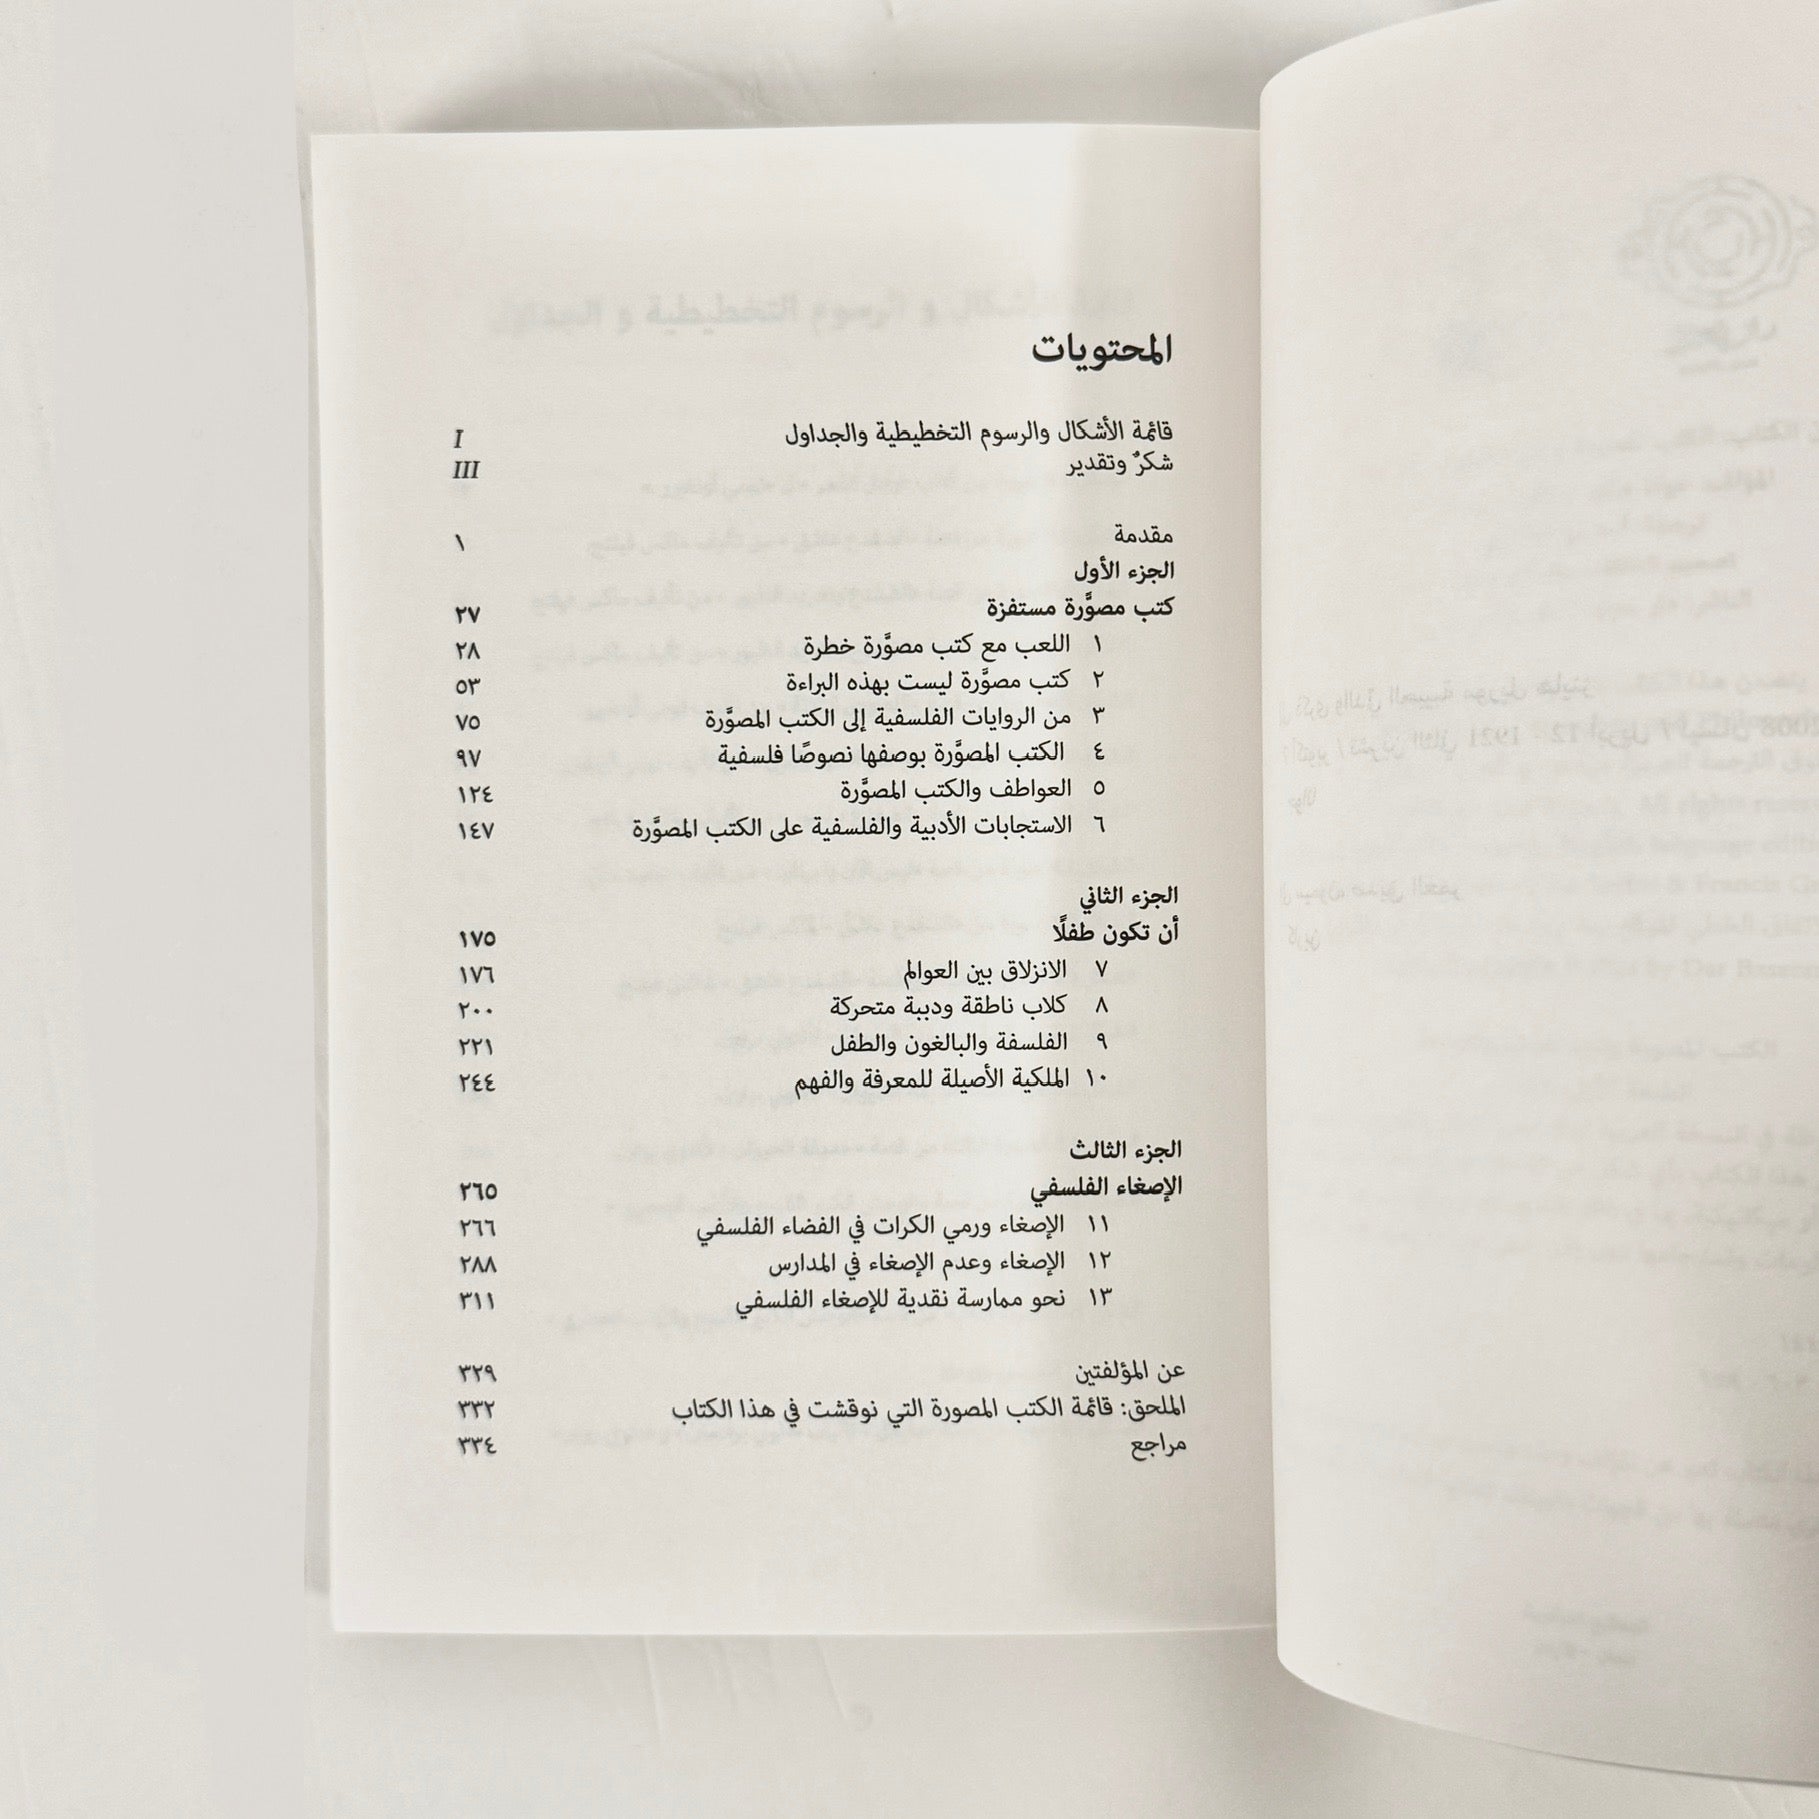 المحتويات
قائمة الأشكال والرسوم التخطيطية والجداول I
شكرٌ وتقدير III
مقدمة ١
الجزء الأول
كتب مصوَّرة مستفزة ٢٧
١ اللعب مع كتب مصوَّرة خطرة ٢٨
٢ كتب مصوَّرة ليست بهذه البراءة ٥٣
٣ من الروايات الفلسفية إلى الكتب المصوَّرة ٧٥
٤ الكتب المصوَّرة بوصفها نصوصًا فلسفية ٩٧
٥ العواطف والكتب المصوَّرة ١٢٤
٦ الاستجابات الأدبية والفلسفية على الكتب المصوَّرة ١٤٧
الجزء الثاني
أن تكون طفلًا ١٧٥
٧ الانزلاق بين العوالم ١٧٦
٨ كلاب ناطقة ودببة متحركة ٢٠٠
٩ الفلسفة والبالغون والطفل ٢٢١
١٠ الملكية الأصيلة للمعرفة والفهم ٢٤٤
الجزء الثالث
الإصغاء الفلسفي ٢٦٥
١١ الإصغاء ورمي الكرات في الفضاء الفلسفي ٢٦٦
١٢ الإصغاء وعدم الإصغاء في المدارس ٢٨٨
١٣ نحو ممارسة نقدية للإصغاء الفلسفي ٣١١
عن المؤلفتين ٣٢٩
الملحق: قائمة الكتب المصورة التي نوقشت في هذا الكتاب ٣٣٢
مراجع ٣٣٤